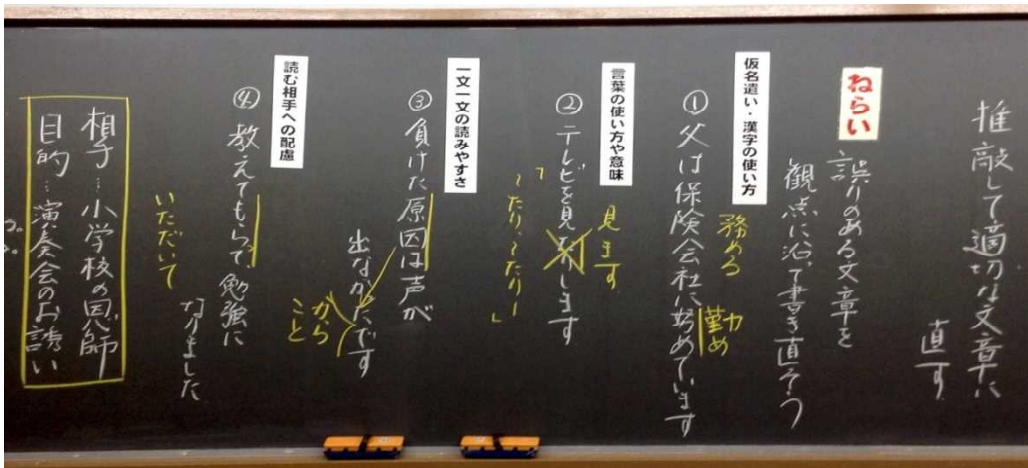 推敲して適切な文章に
直す
ねらい
誤りのある文章を
観点に沿って書き直そう
仮名遣い・漢字の使い方
①父は保険会社に努めています
務める
勤め
言葉の使い方や意味
②テレビを見たりします
見ます
「～たり、～たり」
一文一文の読みやすさ
③負けた原因は声が
出なかったです
から
こと
読む相手への配慮
④教えてもらって、勉強に
なりました
いただいて
相手…小学校の恩師
目的…演奏会のお誘い